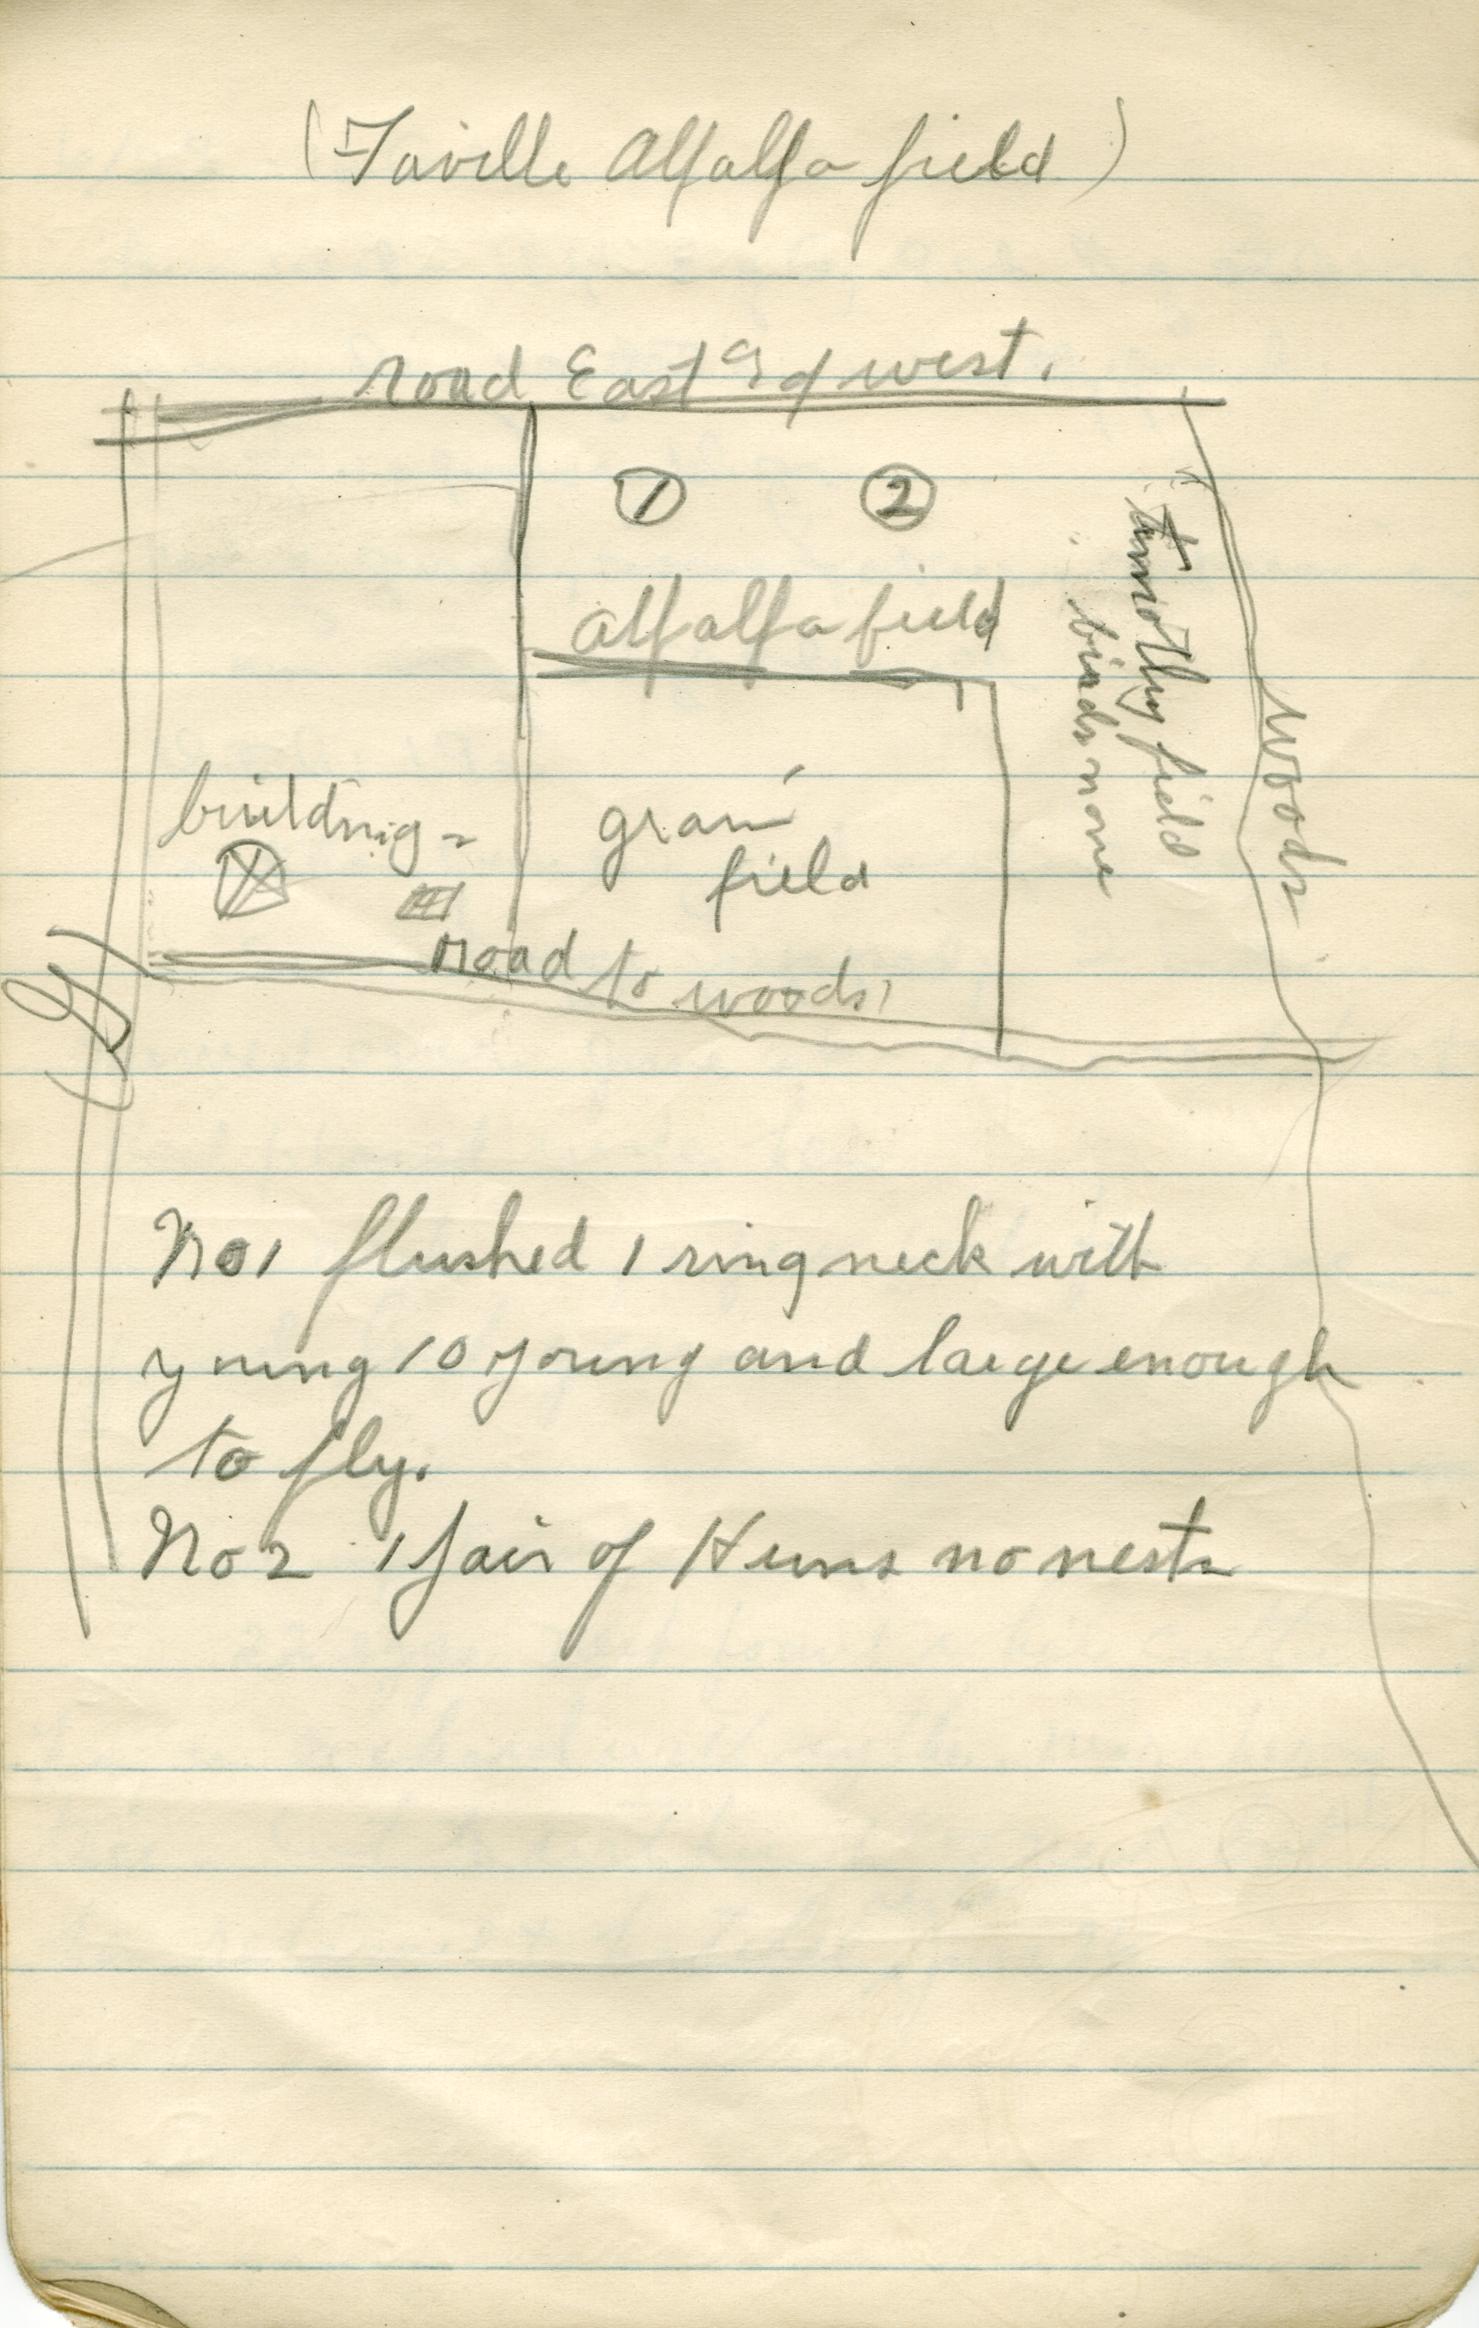 (Faville Alfalfa field)
road East and west.
1 2
alfalfa field
timothy field
birds none
woods
buildings
grain
field
road to woods
No 1 flushed 1 ring neck with
young 10 young and large enough
to fly.
No 2 1 pair of Huns no nests